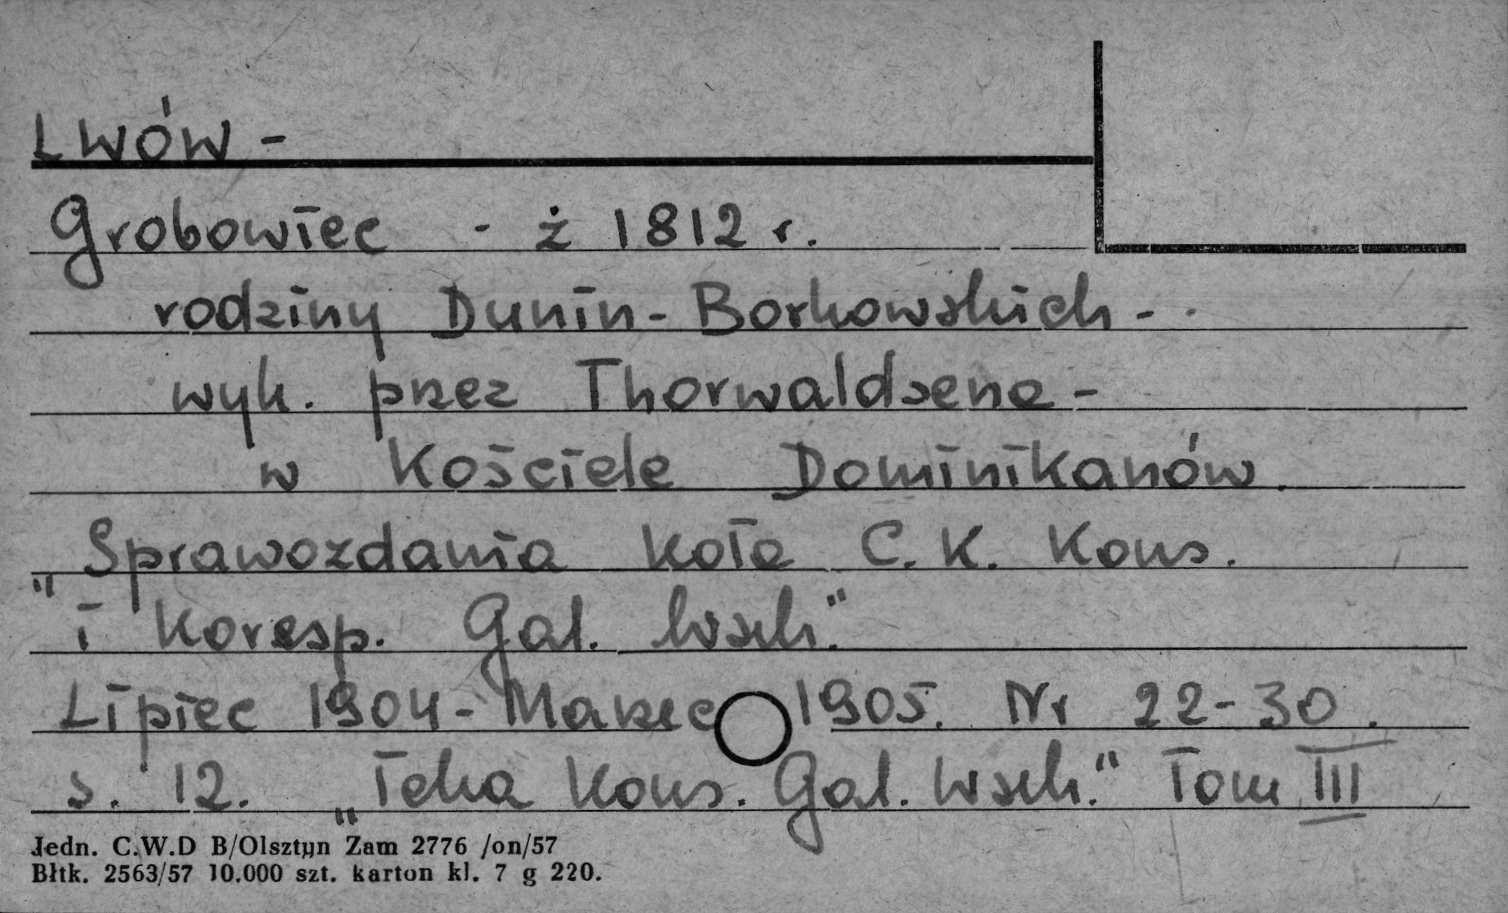 Lwów -
Grobowiec - ż 1812 r.
rodziny Dunin - Borkowskich -
wyk. przez Thorwaldsena -
w Kościele Dominikanów.
Sprawozdania Koła C. K. Kons.
" i Koresp. Gal. Wsch."
Lipiec 1904 - Marzec 1905. Nr 22-30.
s. 12. „Teka Kons. Gal. Wsch." Tom III
Jedn. C.W.D B/Olsztyn Zam 2776 /on/57
Błtk. 2563/57 10.000 szt. karton kl. 7 g 220.